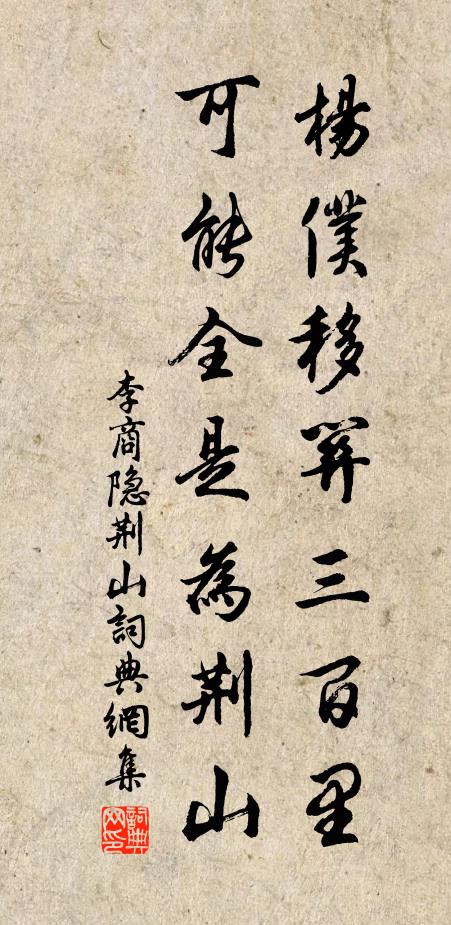 楊僕移關三百里
可能全是為荆山
李商隐荆山詞典網集
詞典网印